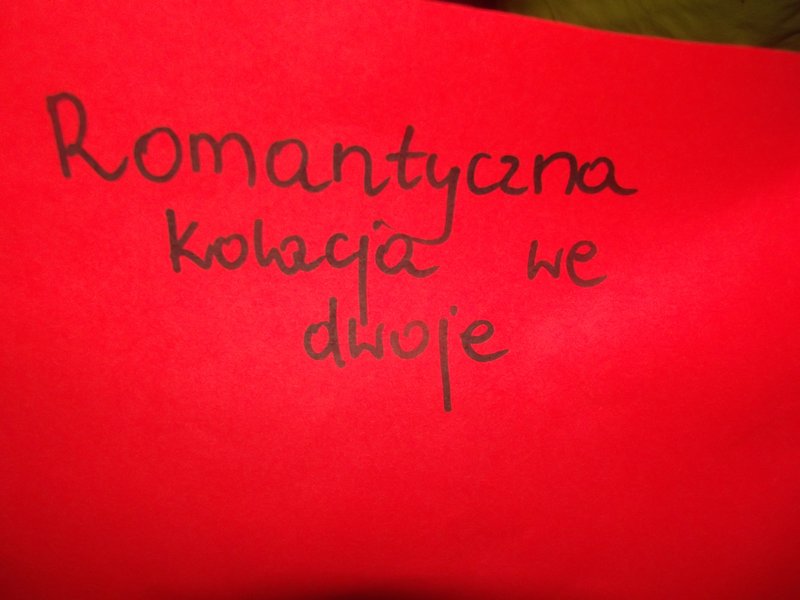 Romantyczna
kolacja we
dwoje